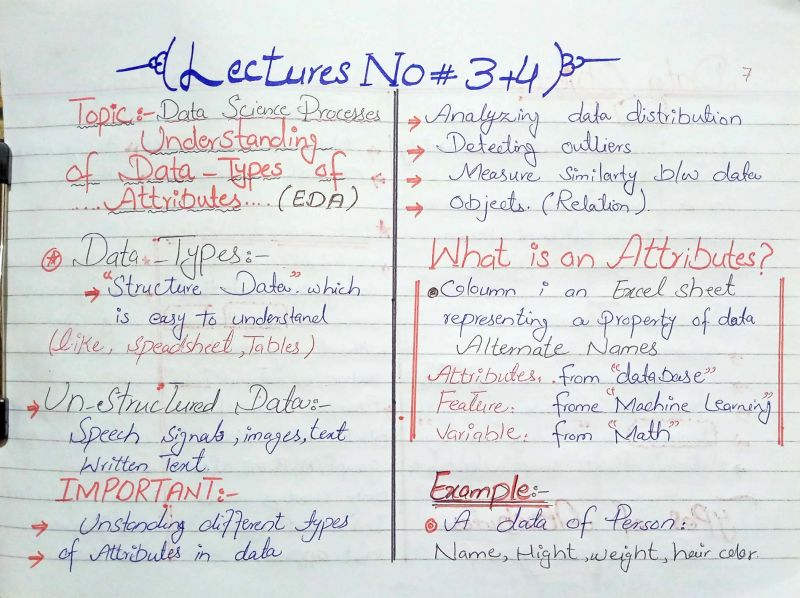 (Lectures No # 3+4)
7
Topic:- Data Science Processes
Understanding
of Data-Types of
....Attributes.... (EDA)
Data-Types:-
→ "Structure Data" which
is easy to understand
(like, Speadsheet, Tables)
→ Un-Structured Data:-
Speech Signals, images, text
Written Text.
IMPORTANT:-
→ Unstanding different types
→ of Attributes in data
→ Analyzing data distribution
→ Detecting outliers
→ Measure Similarty b/w data
→ Objects. (Relation).
What is an Attributes?
Coloumn i an Excel sheet
representing a property of data
Alternate Names
Attributes. from "database"
Feature: frome "Machine Learning"
Variable: from "Math"
Example:-
A data of Person:
Name, Hight, weight, hair color.